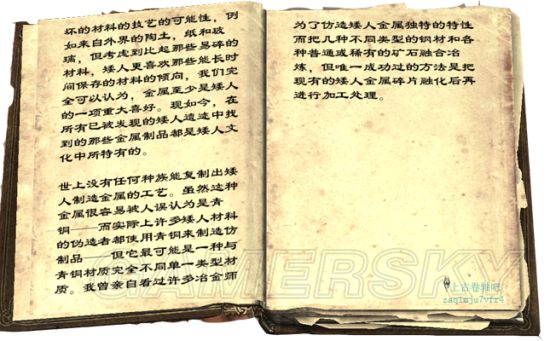 坏的材料的技艺的可能性，例
如来自外界的陶土，纸和玻
璃，但考虑到比起那些易碎的
材料，矮人更喜欢那些能长时
间保存的材料的倾向，我们完
全可以认为，金属至少是矮人
的一项重大喜好。现如今，在
所有已被发现的矮人遗迹中找
到的那些金属制品都是矮人文
化中所特有的。
世上没有任何种族能复制出矮
人制造金属的工艺。虽然这种
金属很容易被人误认为是青
铜——而实际上许多矮人材料
的伪造者都使用青铜来制造仿
制品 但它最可能是一种与
青铜材质完全不同单一类型材
质。我曾亲自看过许多冶金师
为了仿造矮人金属独特的特性
而把几种不同类型的钢材和各
种普通或稀有的矿石融合冶
炼，但唯一成功过的方法是把
现有的矮人金属碎片融化后再
进行加工处理。
GAMERSKY
上古卷轴吧
zaq1mju7vfr4